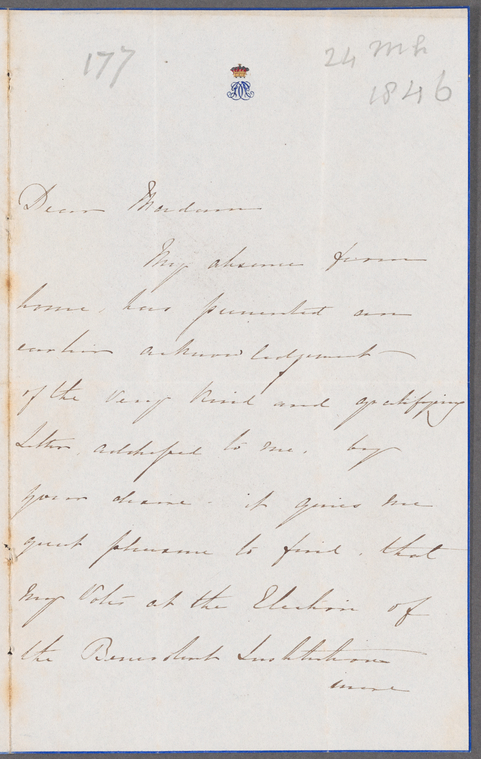 177
24 Mh
1846
Dear Madam
My absence from
home, has prevented an
earlier acknowledgement
of the very kind and gratifying
letter, addressed to me, by
your desire - it gives me
great pleasure to find, that
my Votes at the Election of
the Benevolent Institution
were